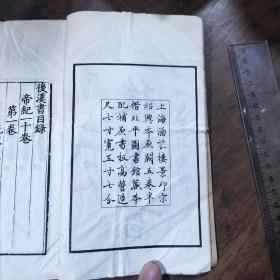 上海涵芬樓景印宋
紹興本原闕五卷半
借北平圖書館藏本
配補原書板高營造
尺七寸寬五寸七分
後漢書目錄
帝紀一十卷
第一卷